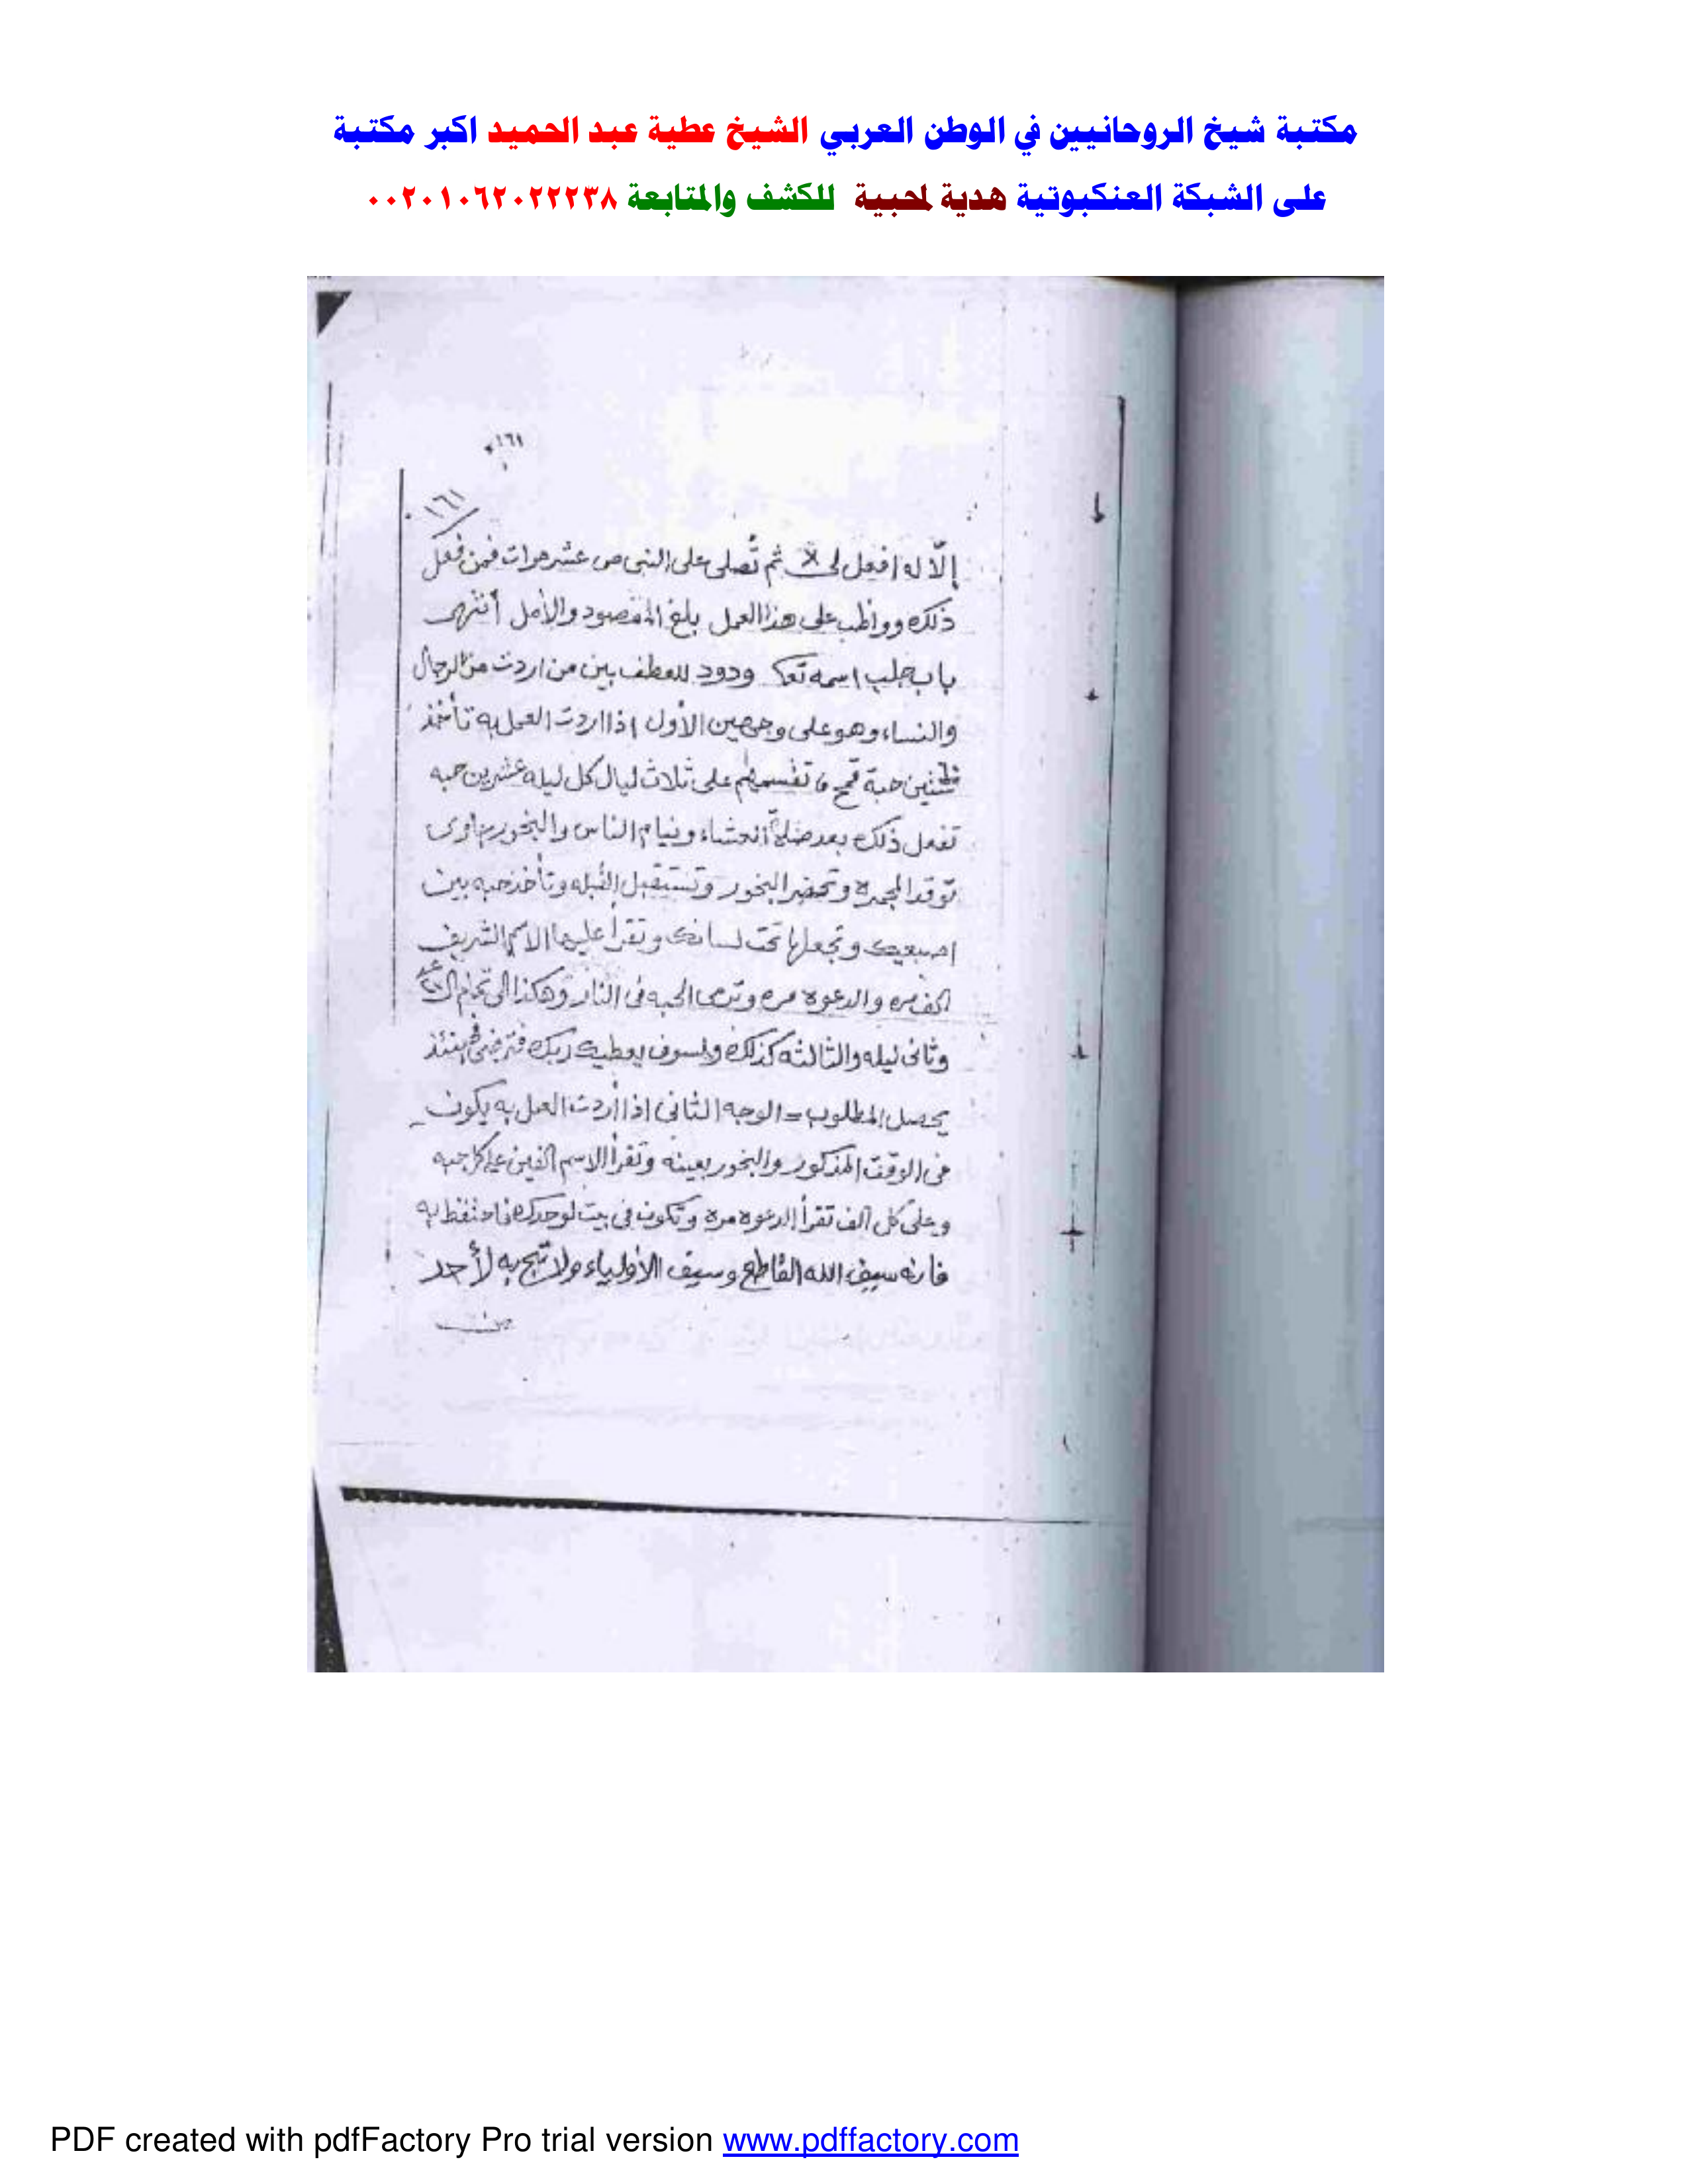 مكتبة شيخ الروحانيين في الوطن العربي الشيخ عطية عبد الحميد اكبر مكتبة
على الشبكة العنكبوتية هدية لمحبية للكشف والمتابعة ٠٠٢٠١٠٦٢٠٢٢٢٣٨
١٦١
١٦١
إلّا له افعل لى ثم تُصلى على النبى ص عشر مرات فمن فعل
ذلك وواظب على هذا العمل بلغ المقصود والأمل أنتهى
باب جلب اسمه تعا ودود للعطف بين من اردت من الرجال
والنساء وهو على وجهين الأول اذا اردت العمل به تأخذ
ستين حبة قمح تقسمهم على ثلاث ليال كل ليله عشرين حبه
تفعل ذلك بعد صلاة العشاء وينام الناس والبخور جاوى
توقد المجمره وتحضر البخور وتستقبل القبله وتأخذ حبه بين
اصبعيك وتجعلها تحت لسانك وتقرأ عليها الاسم الشريف
الف مره والدعوه مره وترمى الحبه فى النار وهكذا الى تمام الـ
وثانى ليله والثالثه كذلك ولسوف يعطيك ربك فترضى
يحصل المطلوب = الوجه الثانى اذا أردت العمل به يكون
فى الوقت المذكور والبخور بعينه وتقرأ الاسم الفين على كل حبه
وعلى كل الف تقرأ الدعوه مره وتكون فى بيت لوحدك فاحتفظ به
فإنه سيف الله القاطع وسيف الأولياء ولا تبح به لأحد
PDF created with pdfFactory Pro trial version www.pdffactory.com